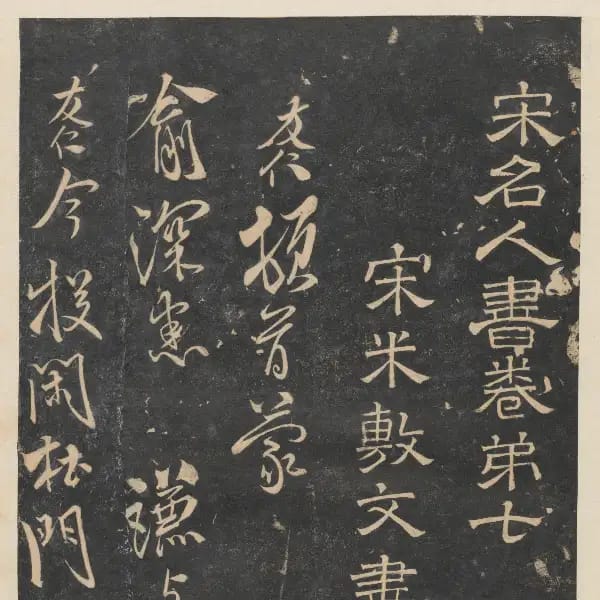 宋名人書卷弟七
宋米敷文書
友仁頓首蒙
俞深悉 謙与
友仁今投閑杜門